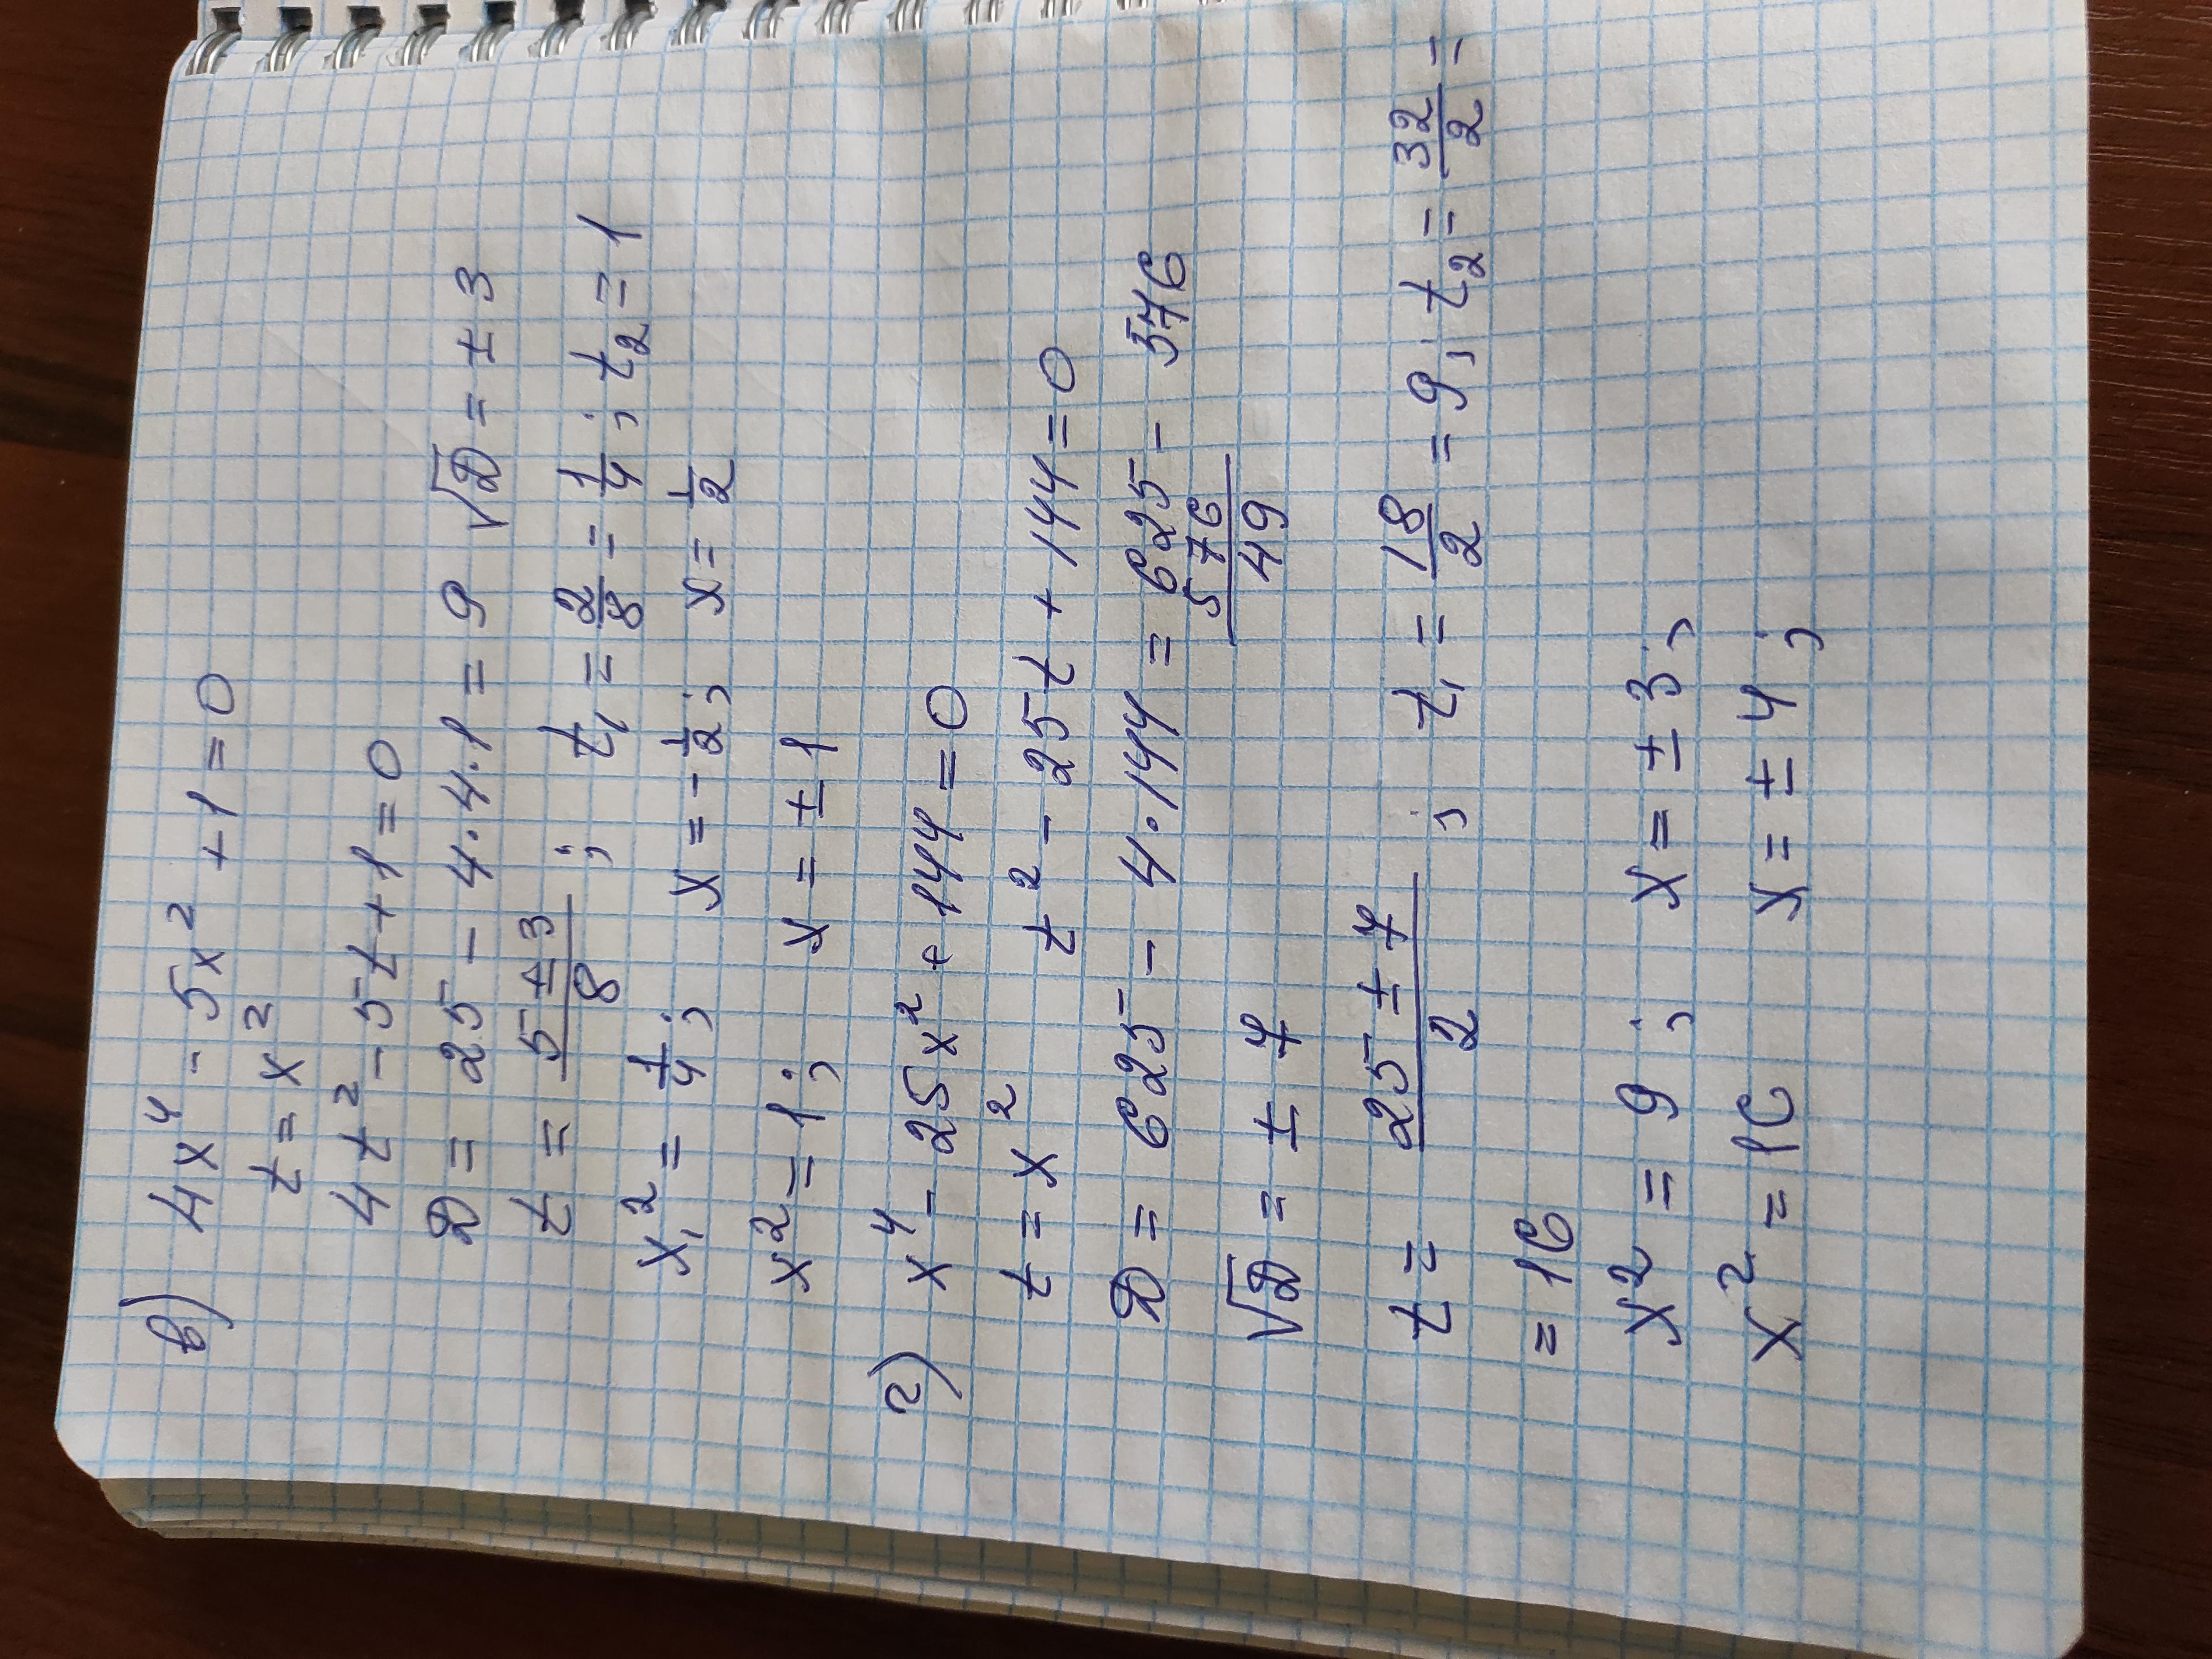 в) 4x⁴ - 5x² + 1 = 0
t = x²
4t² - 5t + 1 = 0
D = 25 - 4·4·1 = 9 √D = ± 3
t = (5 ± 3)/8 ; t₁ = 2/8 = 1/4 ; t₂ = 1
x₁² = 1/4 ; x = -1/2 ; x = 1/2
x² = 1 ; x = ± 1
г) x⁴ - 25x² + 144 = 0
t = x² t² - 25t + 144 = 0
D = 625 - 4·144 = 625 - 576
576
√D = ± 7 49
t = (25 ± 7)/2 ; t₁ = 18/2 = 9 ; t₂ = 32/2 =
= 16
x² = 9 ; x = ± 3 ;
x² = 16 x = ± 4 ;